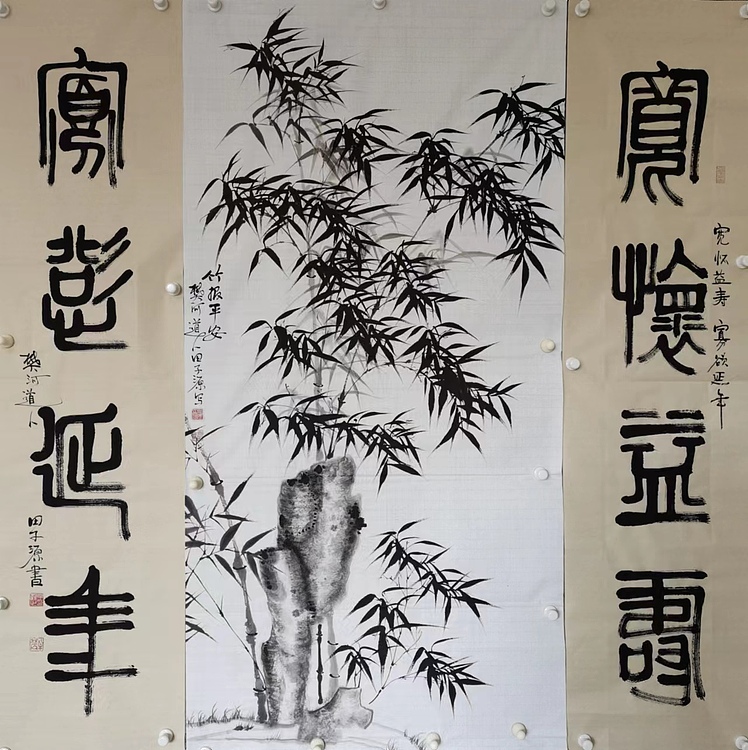 寬懷益壽
宽怀益寿 寡欲延年
竹报平安
樊河道人田子源写
寡慾延年
樊河道人
田子源書